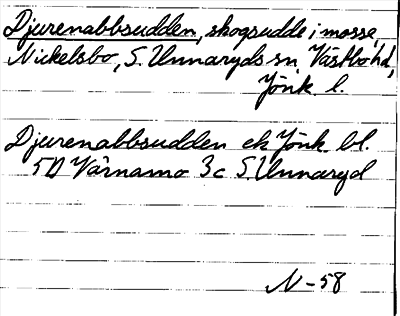 Djurenabbsudden, skogsudde i mosse,
Nickelsbo, S. Unnaryds sn Västbo hd,
Jönk. l.
Djurenabbsudden ek Jönk. bl.
5D Värnamo 3c S. Unnaryd
N-58